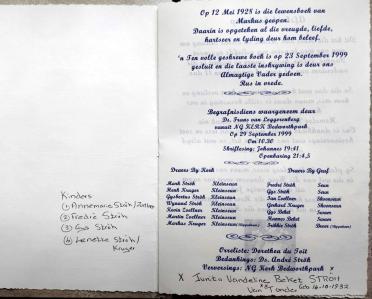 Kinders
(1) Annemarie Ströh/Zoellner
(2) Fredré Ströh
(3) Gys Ströh
(4) Lenette Ströh/
Kruger
Op 12 Mei 1928 is die lewensboek van
Markus geopen.
Daarin is opgeteken al die vreugde, liefde,
hartseer en lyding deur hom beleef.
'n Ten volle geskrewe boek is op 23 September 1999
gesluit en die laaste inskrywing is deur ons
Almagtige Vader gedoen.
Rus in vrede.
Begrafnisdiens waargeneem deur
Ds. Frans van
vanuit NG KERK Bedworthpark
Op 29 September 1999
Om 10.30
Skriflesing: Johannes 19:41
Openbaring 21:4,5
Draers By Kerk
Draers By Graf
Mark Ströh Kleinseun
Fredré Ströh Seun
Mark Kruger Kleinseun
Gys Ströh Seun
Gysbertus Ströh Kleinseun
Zoellner Skoonseun
Wynand Ströh Kleinseun
Gerhard Kruger Skoonseun
Kevin Zoellner Kleinseun
Gys Beket Swaer
Martin Zoellner Kleinseun
Beket Swaer
Markus Kruger Kleinseun
Ströh
Orreliste: Dorothea du Toit
Bedankings: Ds. André Ströh
Verversings: NG Kerk Bedworthpark
X Junita Vandeline Beket STROH
Van Tonder Geb 16-10-1932